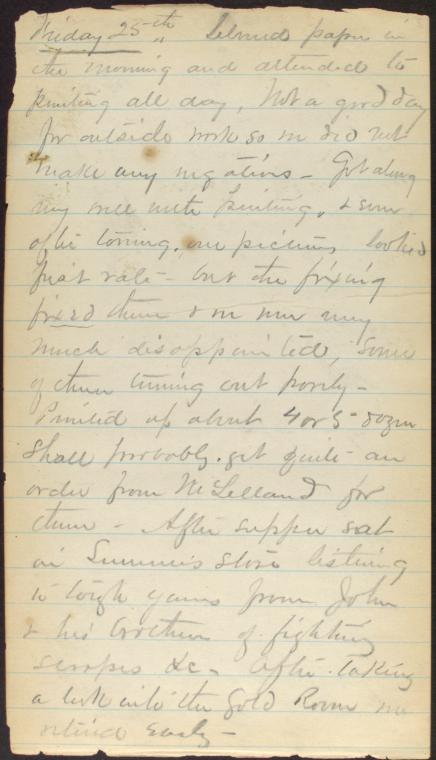 Friday 25th, Silvered paper in
the morning and attended to
printing all day, Not a good day
for outside work so we did not
make any negatives - Got along
very well with printing, & some
of the toning, our pictures looked
first rate - but the fixing
fixed them & we were very
much disappointed, some
of them turning out poorly -
Printed up about 4 or 5 dozen
shall probably get quite an
order from McLelland for
them - After supper sat
in Sumner's store listening
to tough yarns from John
& his brothers of fighting
scrapes &c - After taking
a look into the Gold Room we
retired early -